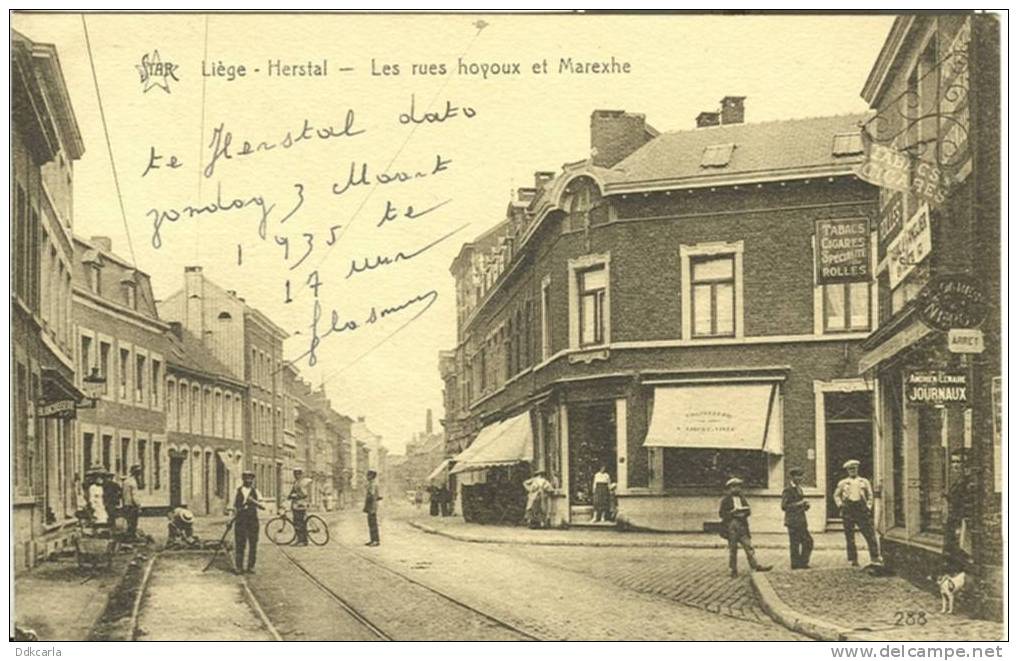 STAR Liège - Herstal — Les rues hoyoux et Marexhe
te Herstal dato
zondag 3 Maart
1935 te
17 uur
TABACS
CIGARES
TABACS
CIGARES
SPÉCIALITÉ
DE
ROLLES
ARRET
JOURNAUX
288
Ddkcarla
www.delcampe.net